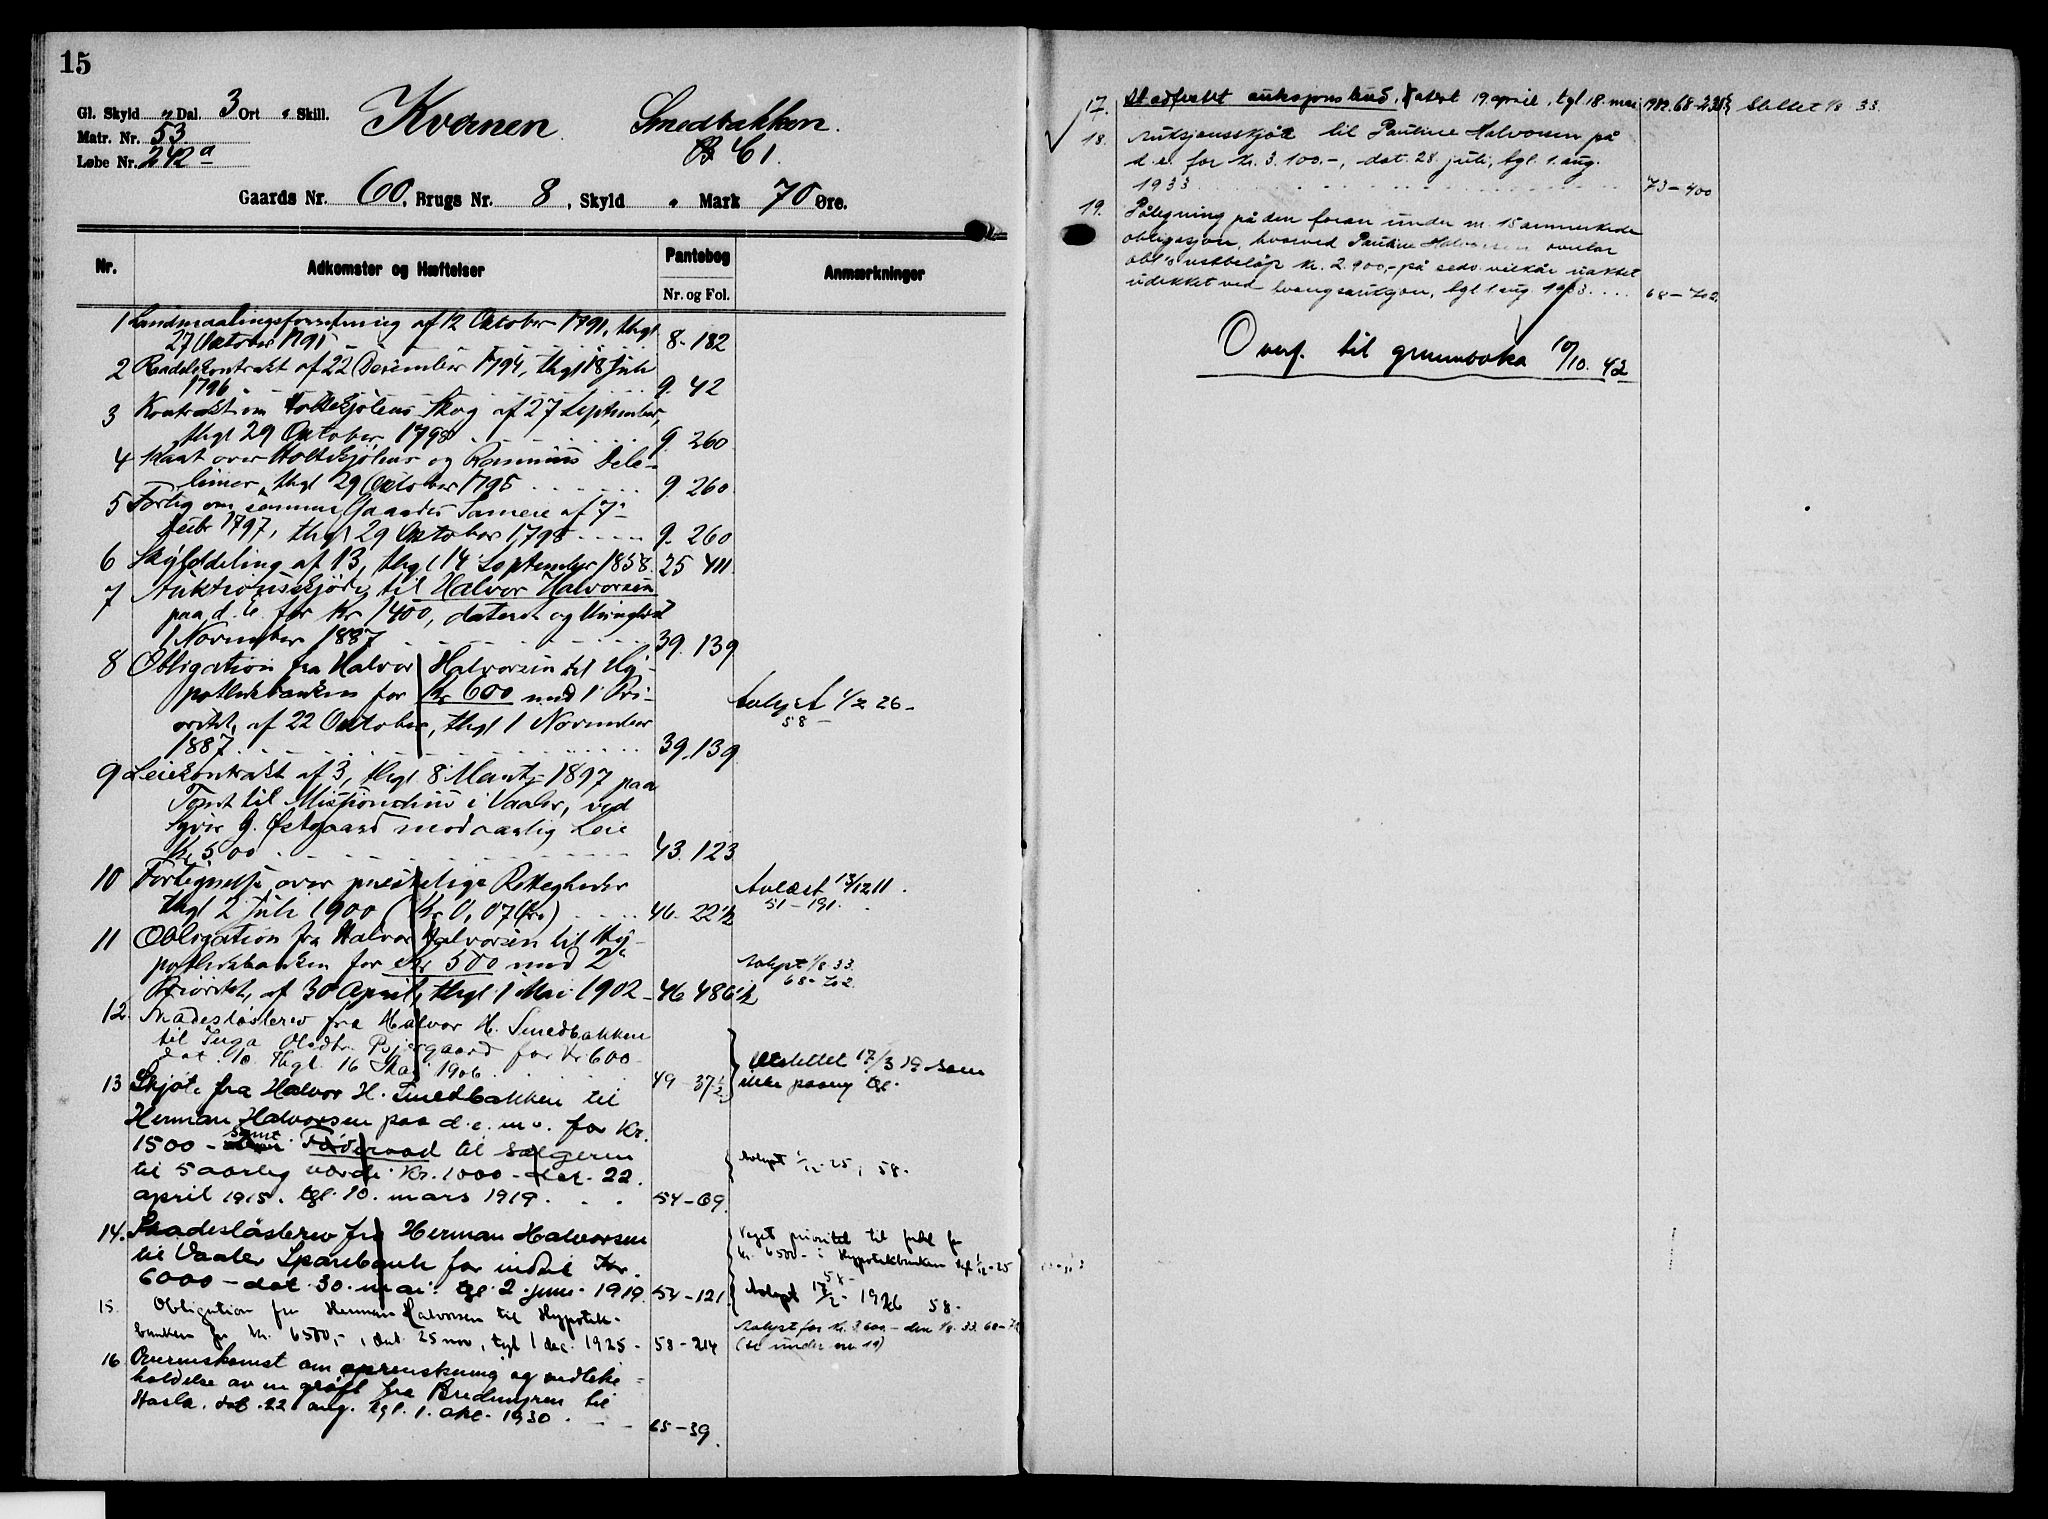 15
Gl. Skyld „ Dal. 3 Ort „ Skill.
Matr. Nr. 53.
Løbe Nr. 242a
Kvernen Smedbakken.
B 61.
Gaards Nr. 60, Brugs Nr. 8, Skyld „ Mark 70 Øre.
Nr. Adkomster og Hæftelser Pantebog Anmærkninger
Nr. og Fol.
1 Landmaalingsforretning af 12 Oktober 1791, thgl
27 Oktober 1791 8-182
2 af 22 December 1794, thgl 18 Juli
1796 9. 42
3 Kontrakt om Holtekjølens Skog af 27 September,
thgl 29 Oktober 1798 9. 260
4 over Holtekjølens og Rasmus Dele-
linier, thgl 29 Oktober 1798 9. 260
5 Forlig om Gaardes Sameie af 7de
1797, thgl 29 Oktober 1798 9. 260
6 Skylddeling af 13, thgl 14 September 1858. 25 411.
7 Auktionsskjøde til Halvor Halvorsen
paa d. E. for Kr 1400, dateret og thinglæst
1 November 1887 39. 139
8 Obligation fra Halvor Halvorsen til Hy-
pothekbanken for Kr 600 med 1 Pri-
oritet, af 22 Oktober, thgl 1 November
1887. 39. 139
Avlyst 1/2 26-
58-
9 Leiekontrakt af 3, thgl 8 Marts 1897 paa
Tomt til Missionshus i Vaaler, ved
G. Østgaard mod aarlig Leie
Kr 5 00 43. 123
10 Fortegnelse over Rettigheder
thgl 2 Juli 1900 (Kr 0,07) 46. 22½
Avlæst 13/12 11.
51-191.
11 Obligation fra Halvor Halvorsen til Hy-
pothekbanken for Kr 500 med 2
Prioritet, af 30 April, thgl 1 Mai 1902 - 46 486½
Avlyst 1/8 33.
68-702.
12. Skadesløsbrev fra Halvor H. Smedbakken
til Inga Olsdtr. for Kr. 600
dat. 10. Thgl. 16 Mai 1906. 49-37½
Utslettet 17/3 19 som
ikke tgl.
13 Skjøte fra Halvor H. Smedbakken til
Herman Halvorsen paa d. e. m. v. for Kr.
1500 - samt Føderaad til sælgeren
til 5 aarlig værdi Kr. 1000 - dat. 22.
april 1915. tgl. 10. mars 1919. 54-69.
Avlyst 1/12.25, 58-
14. Skadesløsbrev fra Herman Halvorsen
til Vaaler Sparebank for indtil Kr.
6000 - dat. 30. mai. tgl. 2. juni. 1919. 54-121
Veget prioritet til fordel for
kr. 6500- i Hypotekbanken tgl 1/12-25
58-
Avlyst 17/2- 1926 58-
15. Obligation fra Herman Halvorsen til Hypotek-
banken for kr. 6500,-, dat. 25 nov, tgl 1 dec. 1925- 58-214
Avlyst for kr. 3,600,- den 1/8. 33. 68-702
(se under nr 19)
16 Overenskomst om oprenskning og vedlike-
holdelse av en grøft fra Bredmyren til
Hasla. dat. 22 aug. tgl. 1. okt. 1930. 65-39.
17. Utstedt auksjonsbud, datert 19 april, tgl. 18. mai 1932. 68-238½ Slettet 1/8 33.
18. Auksjonsskjøte til Pauline Halvorsen på
d. e. for kr. 3.100.-, dat. 28 juli, tgl. 1. aug.
1933. 73-400
19. Påtegning på den foran under nr. 15 anmerkede
obligasjon, hvorved Pauline Halvorsen overtar
obl's restbeløp kr. 2.900,- på sedv. vilkår uaktet
udekket ved tvangsauksjon, tgl 1 aug 1933. 68-702.
Overf. til grunnboka 10/10. 42